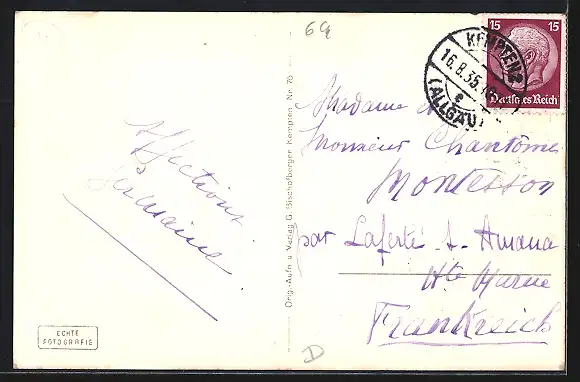 6q
15 15
Deutsches Reich
KEMPTEN 2
16.8.35
e
(ALLGÄU)
Affections
Germaine
Madame et
Monsieur Chantôme
Montesson
par Laferté s. Amance
Hte Marne
Frankreich
Orig.-Aufn u Verlag G. Bischofberger Kempten Nr. 70
ECHTE
FOTOGRAFIE
D